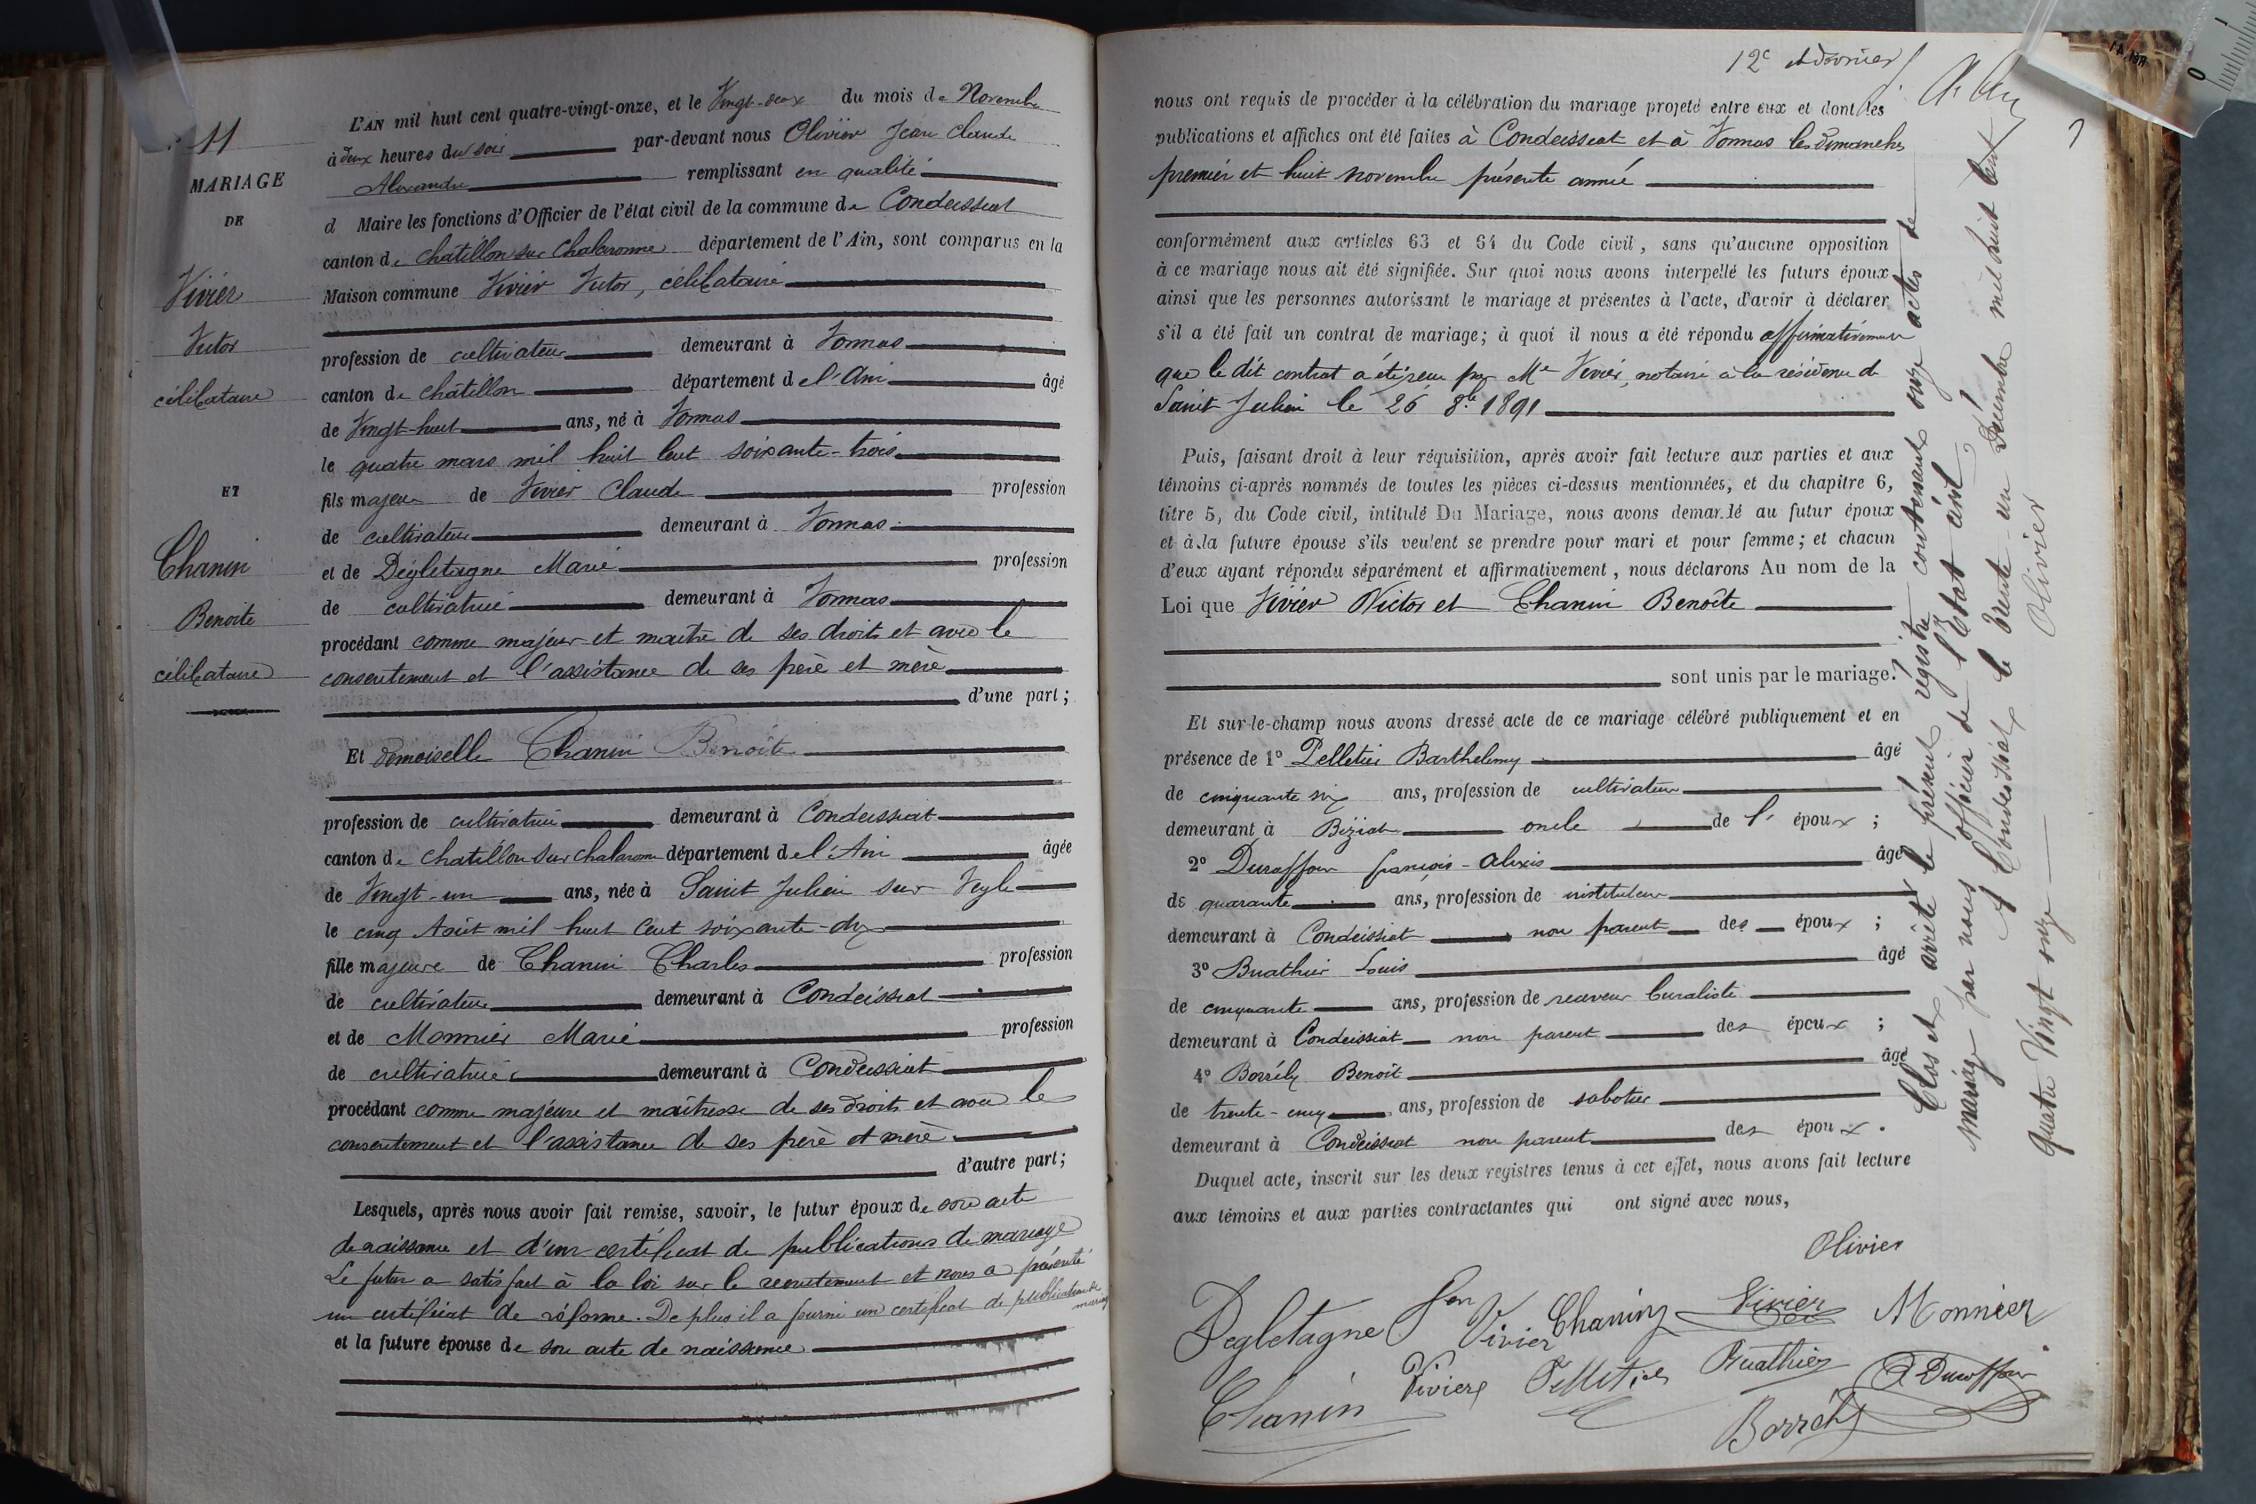 11
MARIAGE
DE
Vivier
Victor
célibataire
ET
Chanin
Benoite
célibataire
L'AN mil huit cent quatre-vingt-onze, et le Vingt-deux du mois de Novembre
à deux heures du soir par-devant nous Olivier Jean Claude
Alexandre remplissant en qualité
d Maire les fonctions d'Officier de l'état civil de la commune de Condeissiat
canton de Châtillon sur Chalaronne département de l'Ain, sont comparus en la
Maison commune Vivier Victor, célibataire
profession de cultivateur demeurant à Vonnas
canton de Châtillon département de l'Ain âgé
de Vingt-huit ans, né à Vonnas
le quatre mars mil huit cent soixante-trois
fils majeur de Vivier Claude profession
de cultivateur demeurant à Vonnas
et de Degletagne Marie profession
de cultivatrice demeurant à Vonnas
procédant comme majeur et maitre de ses droits et avec le
consentement et l'assistance de ses père et mère
d'une part;
Et demoiselle Chanin Benoite
profession de cultivatrice demeurant à Condeissiat
canton de Chatillon sur chalaronne département de l'Ain âgée
de Vingt-un ans, née à Saint Julien sur Veyle
le cinq Août mil huit Cent soixante-dix
fille majeure de Chanin Charles profession
de cultivateur demeurant à Condeissiat
et de Monnier Marie profession
de cultivatrice demeurant à Condeissiat
procédant comme majeure et maîtresse de ses droits et avec le
consentement et l'assistance de ses père et mère
d'autre part;
Lesquels, après nous avoir fait remise, savoir, le futur époux de son acte
de naissance et d'un certificat de publications de mariage
Le futur a satisfait à la loi sur le recrutement et nous a présenté
un certificat de réforme. De plus il a fourni un certificat de publication de
mariage
et la future épouse de son acte de naissance
12e et dernier
nous ont requis de procéder à la célébration du mariage projeté entre eux et dont les
publications et affiches ont été faites à Condeissiat et à Vonnas les dimanches
premier et huit novembre présente année
conformément aux articles 63 et 64 du Code civil, sans qu'aucune opposition
à ce mariage nous ait été signifiée. Sur quoi nous avons interpellé les futurs époux
ainsi que les personnes autorisant le mariage et présentes à l'acte, d'avoir à déclarer
s'il a été fait un contrat de mariage; à quoi il nous a été répondu affirmativement
que le dit contrat a été reçu par Me Vivier, notaire à la résidence de
Saint Julien le 26 8bre 1891
Puis, faisant droit à leur réquisition, après avoir fait lecture aux parties et aux
témoins ci-après nommés de toutes les pièces ci-dessus mentionnées, et du chapitre 6,
titre 5, du Code civil, intitulé Du Mariage, nous avons demandé au futur époux
et à la future épouse s'ils veulent se prendre pour mari et pour femme; et chacun
d'eux ayant répondu séparément et affirmativement, nous déclarons Au nom de la
Loi que Vivier Victor et Chanin Benoîte
sont unis par le mariage.
Et sur-le-champ nous avons dressé acte de ce mariage célébré publiquement et en
présence de 1° Pelletier Barthelemy âgé
de cinquante six ans, profession de cultivateur
demeurant à Biziat oncle de l' époux ;
2° Duraffour françois-Alexis âgé
de quarante ans, profession de instituteur
demeurant à Condeissiat non parent des époux ;
3° Buathier Louis âgé
de cinquante ans, profession de receveur buraliste
demeurant à Condeissiat non parent des époux ;
4° Borrély Benoît âgé
de trente-cinq ans, profession de sabotier
demeurant à Condeissiat non parent des époux .
Duquel acte, inscrit sur les deux registres tenus à cet effet, nous avons fait lecture
aux témoins et aux parties contractantes qui ont signé avec nous,
Olivier
Degletagne fem Vivier Chanin Vivier Monnier
Chanin Vivier Pelletier Buathier A Duraffour
Borrély
Clos et arrêté le présent régistre contenant onze actes de
mariage par nous officier de l'Etat civil
A Condeissiat le trente-un Décembre mil huit cent
quatre Vingt onze
Olivier
0